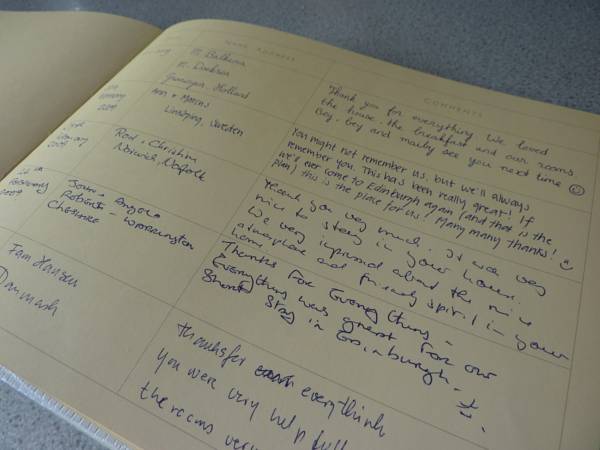 NAME ADDRESS
COMMENTS
Holland
Thank you for everything We loved
the house, the breakfast and our rooms
Boy, boy and maiby see you next time
2009
Ann + Marcus
Linköping, Sweden
You might not remember us, but we'll always
remember you. This has been really great! If
we'll ever come to Edinburgh again (and that is the
plan) this is the place for us! Many many thanks!
2009
Ron + Christine
Norwich, Norfolk
Thank you very much. It was very
nice to stay in your house.
We very impressed about the nice
atmosphere and friendly spirit in your
home
February
2009
Angela
Roberts -
Cheshire - Warrington
Thanks for Everything -
Everything was great for our
Short Stay in Edinburgh.
Fam Hansen
Danmark
thanks for everythink
You were very help full
the rooms very